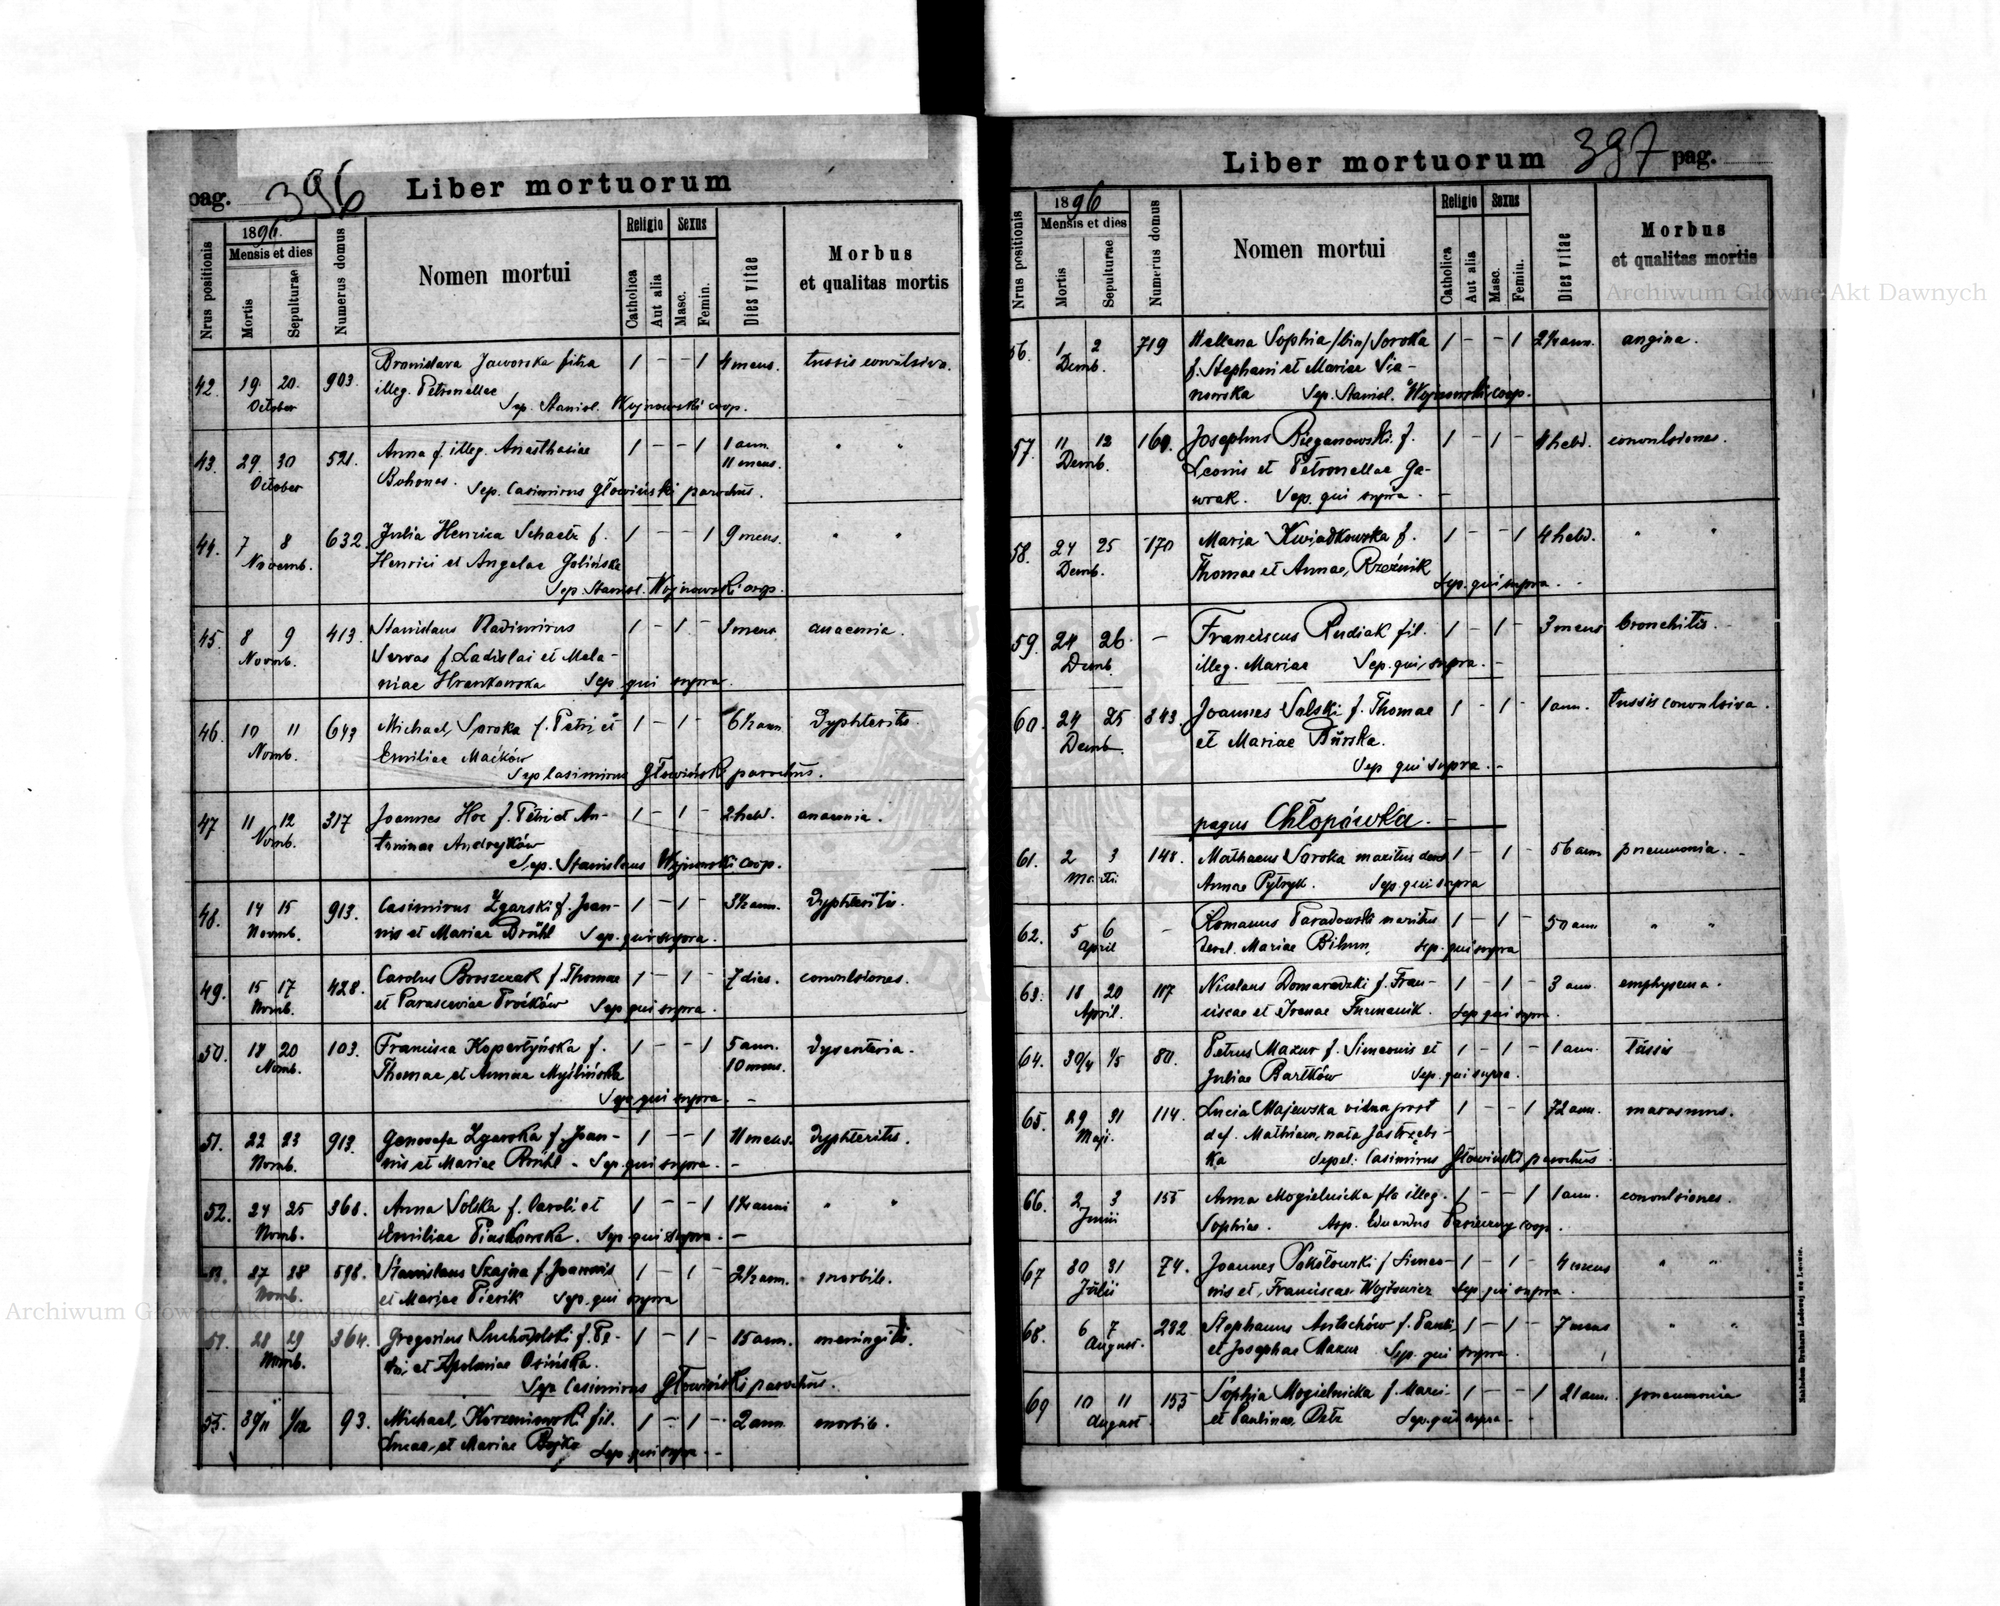 pag. 396 Liber mortuorum
Nrus positionis
1896.
Mensis et dies
Mortis
Sepulturae
Numerus domus
Nomen mortui
Religio
Catholica
Aut alia
Sexus
Masc.
Femin.
Dies vitae
Morbus
et qualitas mortis
42. 19. 20. 903. Bronislava Jaworska filia 1 - - 1 4 mens. tussis convulsiva.
October illeg. Petronellae
Sep. Stanisl. Wojnowski coop.
43. 29 30 521. Anna f. illeg. Anasthasiae 1 - - 1 1 ann. " "
October 11 mens.
Bohonos. Sep. Casimirus Głowiński parochus.
44. 7 8 632. Julia Henrica Schaetz f. 1 - - 1 9 mens. " "
Novemb. Henrici et Angelae Golińska
Sep. Stanisl. Wojnowski coop.
45. 8 9 413. Stanislaus Vladimirus 1 - 1 - mens. anaemia.
Novmb. Servas f. Ladislai et Mela-
niae Hrankowska Sep. qui supra.
46. 10 11 643 Michael Soroka f. Petri et 1 - 1 - 6½ ann. dyphteritis.
Novmb. Emiliae Maćków
Sep Casimirus Głowiński parochus.
47 11 12 317 Joannes Hoc f. Petri et An- 1 - 1 - 2 hebd. anaemia.
Novmb. toninae Andryków
Sep. Stanislaus Wojnowski coop.
48. 14 15 913. Casimirus Zgarski f. Joan- 1 - 1 - 3½ ann. dyphteritis.
Novmb. nis et Mariae Brühl Sep. qui supra.
49. 15 17 428. Carolus Broszczak f. Thomae 1 - 1 - 7 dies. convulsiones.
Novmb. et Parasceviae Proćków Sep qui supra.
50. 18 20 103. Francisca Kopertyńska f. 1 - - 1 5 ann. dysenteria.
Novmb. Thomae et Annae Myślińska 10 mens.
Sep qui supra. -
51. 22 23 913. Genovefa Zgarska f. Joan- 1 - - 1 11 mens. dyphteritis.
Novmb. nis et Mariae Brühl - Sep. qui supra. -
52. 24 25 368. Anna Solska f. Caroli et 1 - - 1 1½ anni " "
Novmb. Emiliae Piaskowska. Sep. qui supra. -
53. 27 28 598. Stanislaus Szajna f. Joannis 1 - 1 - 2½ ann. morbili.
Novmb. et Mariae Pierik Sep. qui supra
54. 28 29 364. Gregorius Suchodolski f. Pe- 1 - 1 - 15 ann. meningitis.
Novmb. tri et Apoloniae Osińska.
Sep. Casimirus Głowiński parochus.
55. 30/11 1/12 93. Michael Korzeniowski fil. 1 - 1 - 2 ann. morbili.
Lucae et Mariae Bojko Sep. qui supra -
Liber mortuorum 397 pag.
Nrus positionis
1896
Mensis et dies
Mortis
Sepulturae
Numerus domus
Nomen mortui
Religio
Catholica
Aut alia
Sexus
Masc.
Femin.
Dies vitae
Morbus
et qualitas mortis
56. 1 2 719 Hellena Sophia /bin/ Soroka 1 - - 1 2½ ann. angina.
Decmb. f. Stephani et Mariae Sia-
norska Sep. Stanisl. Wojnowski coop.
57. 11 12 169. Josephus Bieganowski f. 1 - 1 - 4 hebd. convulsiones.
Decmb. Leonis et Petronellae Ga-
wrak. Sep. qui supra. -
58. 24 25 170 Maria Kwiatkowska f. 1 - - 1 4 hebd. " "
Decmb. Thomae et Annae Rzeźnik
Sep. qui supra. -
59. 24 26. - Franciscus Rudiak fil. 1 - 1 - 3 mens bronchitis.
Decmb. illeg. Mariae Sep. qui supra. -
60. 24 25 843. Joannes Solski f. Thomae 1 - 1 - 1 ann. tussis convulsiva.
Decmb. et Mariae Burska.
Sep qui supra. -
pagus Chłopówka. -
61. 2 3 148. Mathaeus Soroka maritus 1 - 1 - 56 ann pneumonia. -
Martii Annae Pytryk. Sep. qui supra
62. 5 6 - Romanus Paradowski maritus 1 - 1 - 50 ann " "
April derel. Mariae Bihun, Sep. qui supra
63. 18 20 107 Nicolaus Domaradzki f. Fran- 1 - 1 - 3 ann. emphysema.
April. ciscae et Irenae Furmanik. Sep qui supra.
64. 30/4 1/5 80. Petrus Mazur f. Simeonis et 1 - 1 - 1 ann. tussis
Juliae Bartków Sep. qui supra.
65. 29 31 114. Lucia Majewska vidua post 1 - - 1 72 ann. marasmus.
Maji. def. Mathiam, nata Jastrzebs-
ka Sepel. Casimirus Głowiński parochus.
66. 2 3 155 Anna Mogielnicka fla illeg. 1 - - 1 1 ann. convulsiones.
Junii Sophiae. Sep. Eduardus coop.
67 30 31 74. Joannes Sokołowski f Simeo- 1 - 1 - 4 mens " "
Julii nis et Franciscae Wojtowicz Sep qui supra.
68. 6 7 282 Stephanus Antochów f. Pauli 1 - 1 - 7 mens " "
August. et Josephae Mazur Sep. qui supra.
69 10 11 155 Sophia Mogielnicka f. Marci- 1 - - 1 21 ann. pneumonia
August. et Paulinae Petz Sep. qui supra -
Nakładem Drukarni Ludowej we Lwowie.
Archiwum Główne Akt Dawnych
Archiwum Główne Akt Dawnych